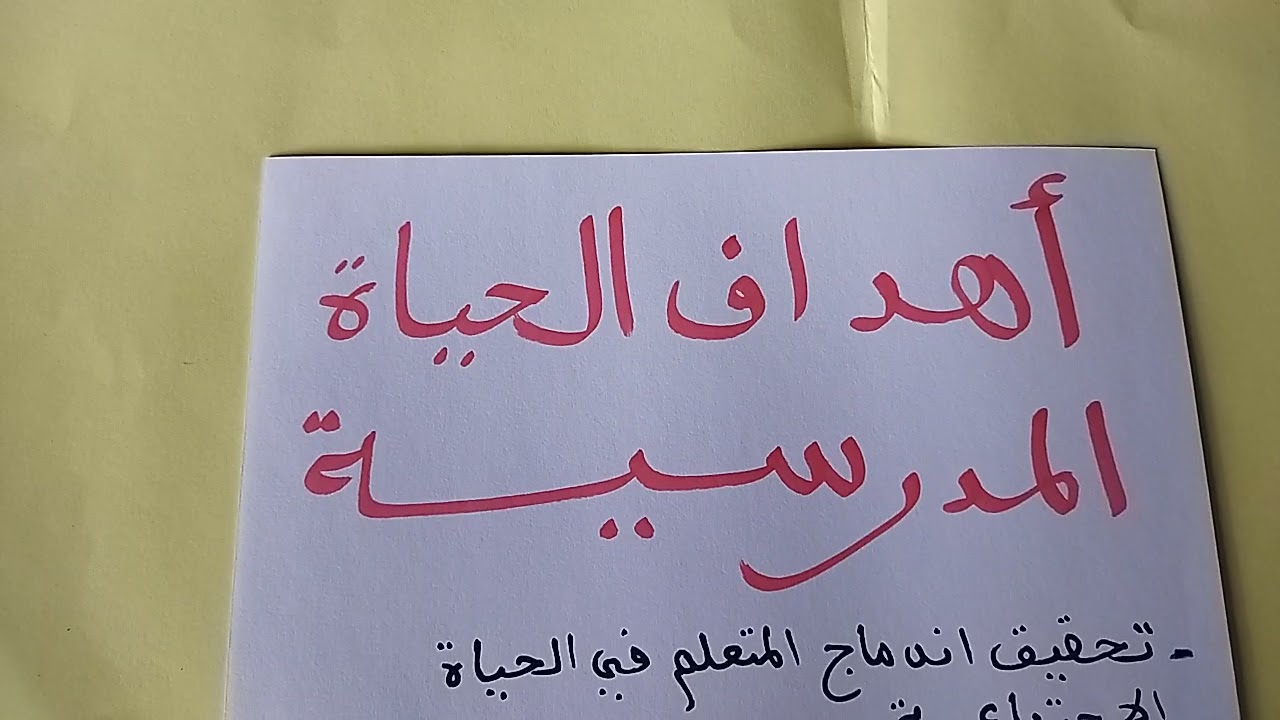 أهداف الحياة
المدرسية
- تحقيق اندماج المتعلم في الحياة